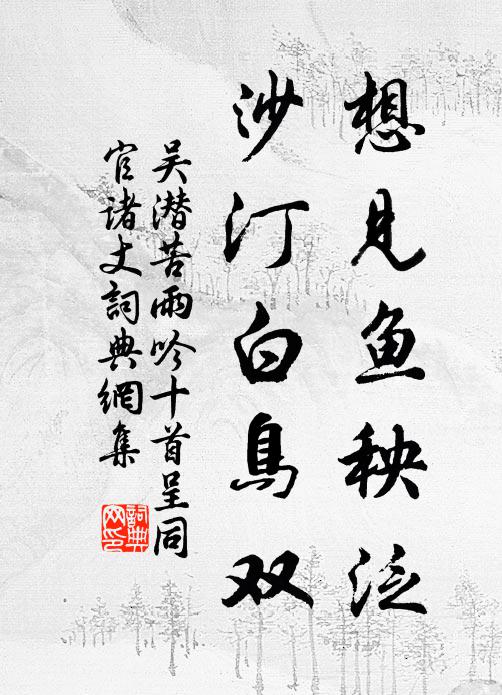 想见鱼秧泛
沙汀白鳥双
吴潜苦雨吟十首呈同
官诸丈詞典網集
詞典
网印